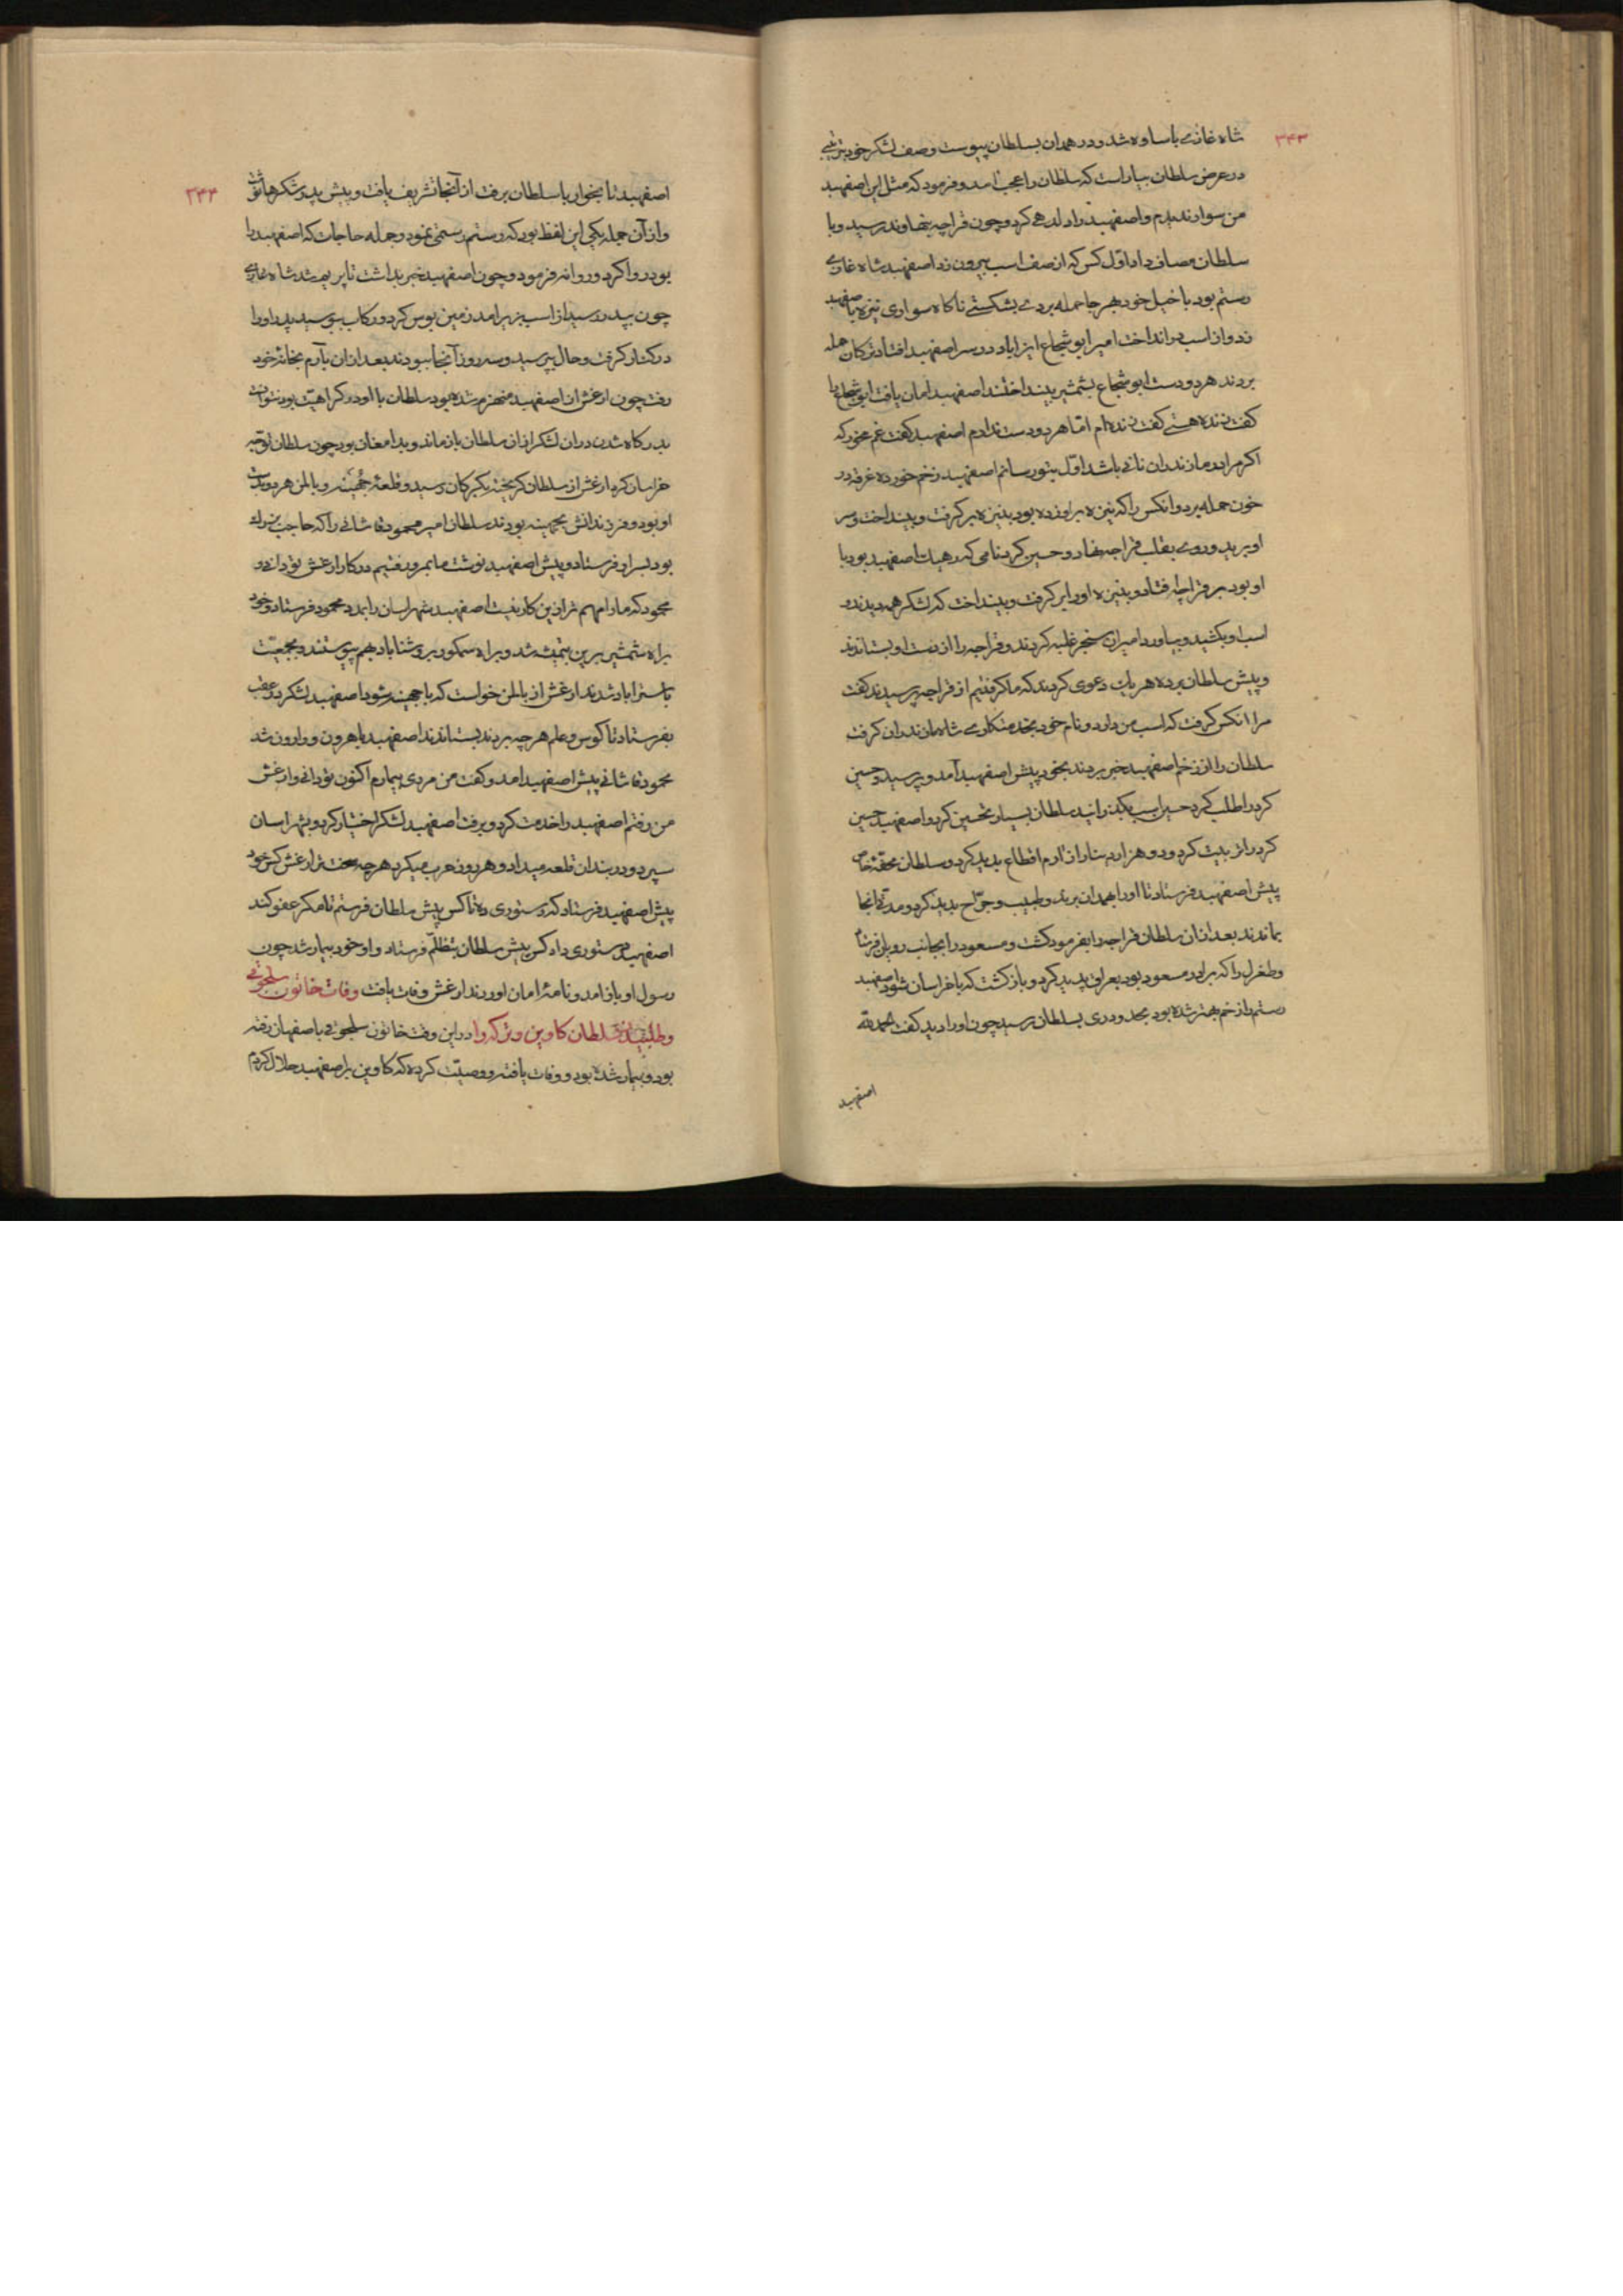 ۳۴۳
شاه غازی باساوه شد و در همدان بسلطان پیوست وصف لشکر خود
در عرض سلطان بیاراست که سلطان را عجب آمد و فرمود که مثل این اصفهبد
من سوار ندیدم و اصفهبد را دلدهی کرد و چون قراچه بنهاوند رسید و با
سلطان مصاف داد اوّل کس که از صف اسب بیرون زد اصفهبد شاه غازی
رستم بود با خیل خود بهر جا حمله بردی بشکستی ناکاه سواری نیزه باصفهبد
زد و از اسب در انداخت امیر ابو شجاع ایزاباد در سر اصفهبد افتاد ترکان حمله
بردند هر دو دست ابو شجاع بشمشیر بینداختند اصفهبد امان یافت ابو شجاع را
کفت زنده هستی کفت زنده ام امّا هر دو دست ندارم اصفهبد کفت غم مخور که
اکر مرا در مازندران نانی باشد اوّل بتو رسانم اصفهبد زخم خورده غرقه در
خون حمله برد و انکس را که نیزه بر او زده بود بنیزه بر کرفت و بینداخت و سر
او برید و روی بقلب قراجه نهاد و حسین کرد نامی که رهیت اصفهبد بود با
او بود بر قراچه افتاد و بنیزه او را بر کرفت و بینداخت که لشکر همه دیدند و
اسب او بکشید و بیاورد امیران سنجر غلبه کردند و قراجه را از دست او بستاندند
و پیش سلطان برده هر یک دعوی کردند که ما کرفتیم از قراجه پرسیدند کفت
مرا انکس کرفت که اسب من دارد و نام خود بخدمتکاری شاه مازندران کرفت
سلطان را از زخم اصفهبد خبر بردند بخود پیش اصفهبد آمد و پرسید و حسین
کرد را طلب کرد حسین اسب بکذرانید سلطان بسیار تحسین کرد و اصفهبد حسین
کرد را تربیت کرد و دو هزار دینار از آرم اقطاع پدید کرد و سلطان محفّه خاص
پیش اصفهبد فرستاد تا او را بهمدان برند و طبیب و جرّاح پدید کرد و مدتی آنجا
بماندند بعد از ان سلطان قراجه را بفرمود کشت و مسعود را بجانب فرستاد
و طغرل را که برادر مسعود بود بعراق پدید کرد و باز کشت که با خراسان شود اصفهبد
رستم را زخم بهتر شده بود بحدود ری بسلطان رسید چون او را دید کفت الحمد لله
اصفهبد
۳۴۴
اصفهبد تا بخوار با سلطان برفت از آنجا تشریف یافت و پیش پدر شکرها نوشت
و از آن جمله یکی این لفظ بود که رستم رستمی نمود و جمله حاجات که اصفهبد را
بود روا کرد و روانه فرمود و چون اصفهبد خبر بداشت تا پریم شد شاه غازی
چون بپدر رسید از اسب بزیر امد زمین بوس کرد و رکاب ببوسید پدر او را
در کنار کرفت و حال بپرسید و سه روز آنجا ببودند بعد از ان بآرم بخانه خود
رفت چون ارغش از اصفهبد منهزم شده بود سلطان با او در کراهیت بود نتوانست
بدرکاه شدن در ان لشکر از ان سلطان باز ماند و بدامغان بود چون سلطان توجّه
خراسان کرد ارغش از سلطان کریخته بکبرکان رسید و قلعه جهینه و بالمن هر دو بدست
او بود و فرزندانش بجهینه بودند سلطان امیر محمود قاشانی را که حاجب بزرک
بود بسر او فرستاد و پیش اصفهبد نوشت ما بمرو رفتیم در کار ارغش تو دانی و
محمود که ما را مهم تر ازین کار نیست اصفهبد شهراسان را بمدد محمود فرستاد و خود
براه شمشیربرین بتمیشه شد و براه سمکور بروشناباد بهم پیوستند و بجمعیّت
باستراباد شدند ارغش از بالمن خواست که با جهینه شود اصفهبد لشکر در عقب
بفرستاد تا کوس و علم هر چه بردند بستاندند اصفهبد باهرون و وارون شد
محمود قاشانی پیش اصفهبد امد و کفت من مردی بیمارم اکنون تو دانی و ارغش
من رفتم اصفهبد را خدمت کرد و برفت اصفهبد لشکر اختیار کرد و بشهراسان
سپرد و در بندان قلعه میداد و هر روز حرب میکرد هر چه سخت تر ارغش کس خود
پیش اصفهبد فرستاد که دستوری ده تا کس پیش سلطان فرستم تا مکر عفو کند
اصفهبد دستوری داد کس پیش سلطان بتظلّم فرستاد و او خود بیمار شد چون
رسول او باز امد و نامه امان اوردند ارغش وفات یافت وفات خاتون سلجوقی
و طلبیدن سلطان کاوین و ترکه را در این وقت خاتون سلجوقی باصفهان رفته
بود و بیمار شده بود و وفات یافته و وصیّت کرده که کاوین بر اصفهبد حلال کردم